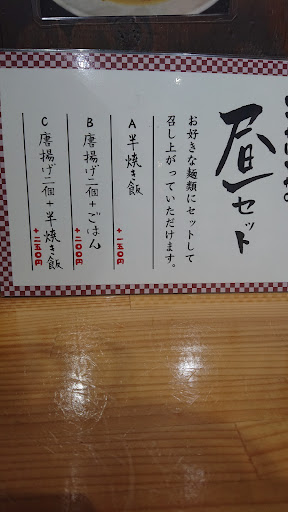 昼セット
お好きな麺類にセットして
召し上がっていただけます。
A 半焼き飯
+一五〇円
B 唐揚げ二個+ごはん
+二〇〇円
C 唐揚げ二個+半焼き飯
+二五〇円